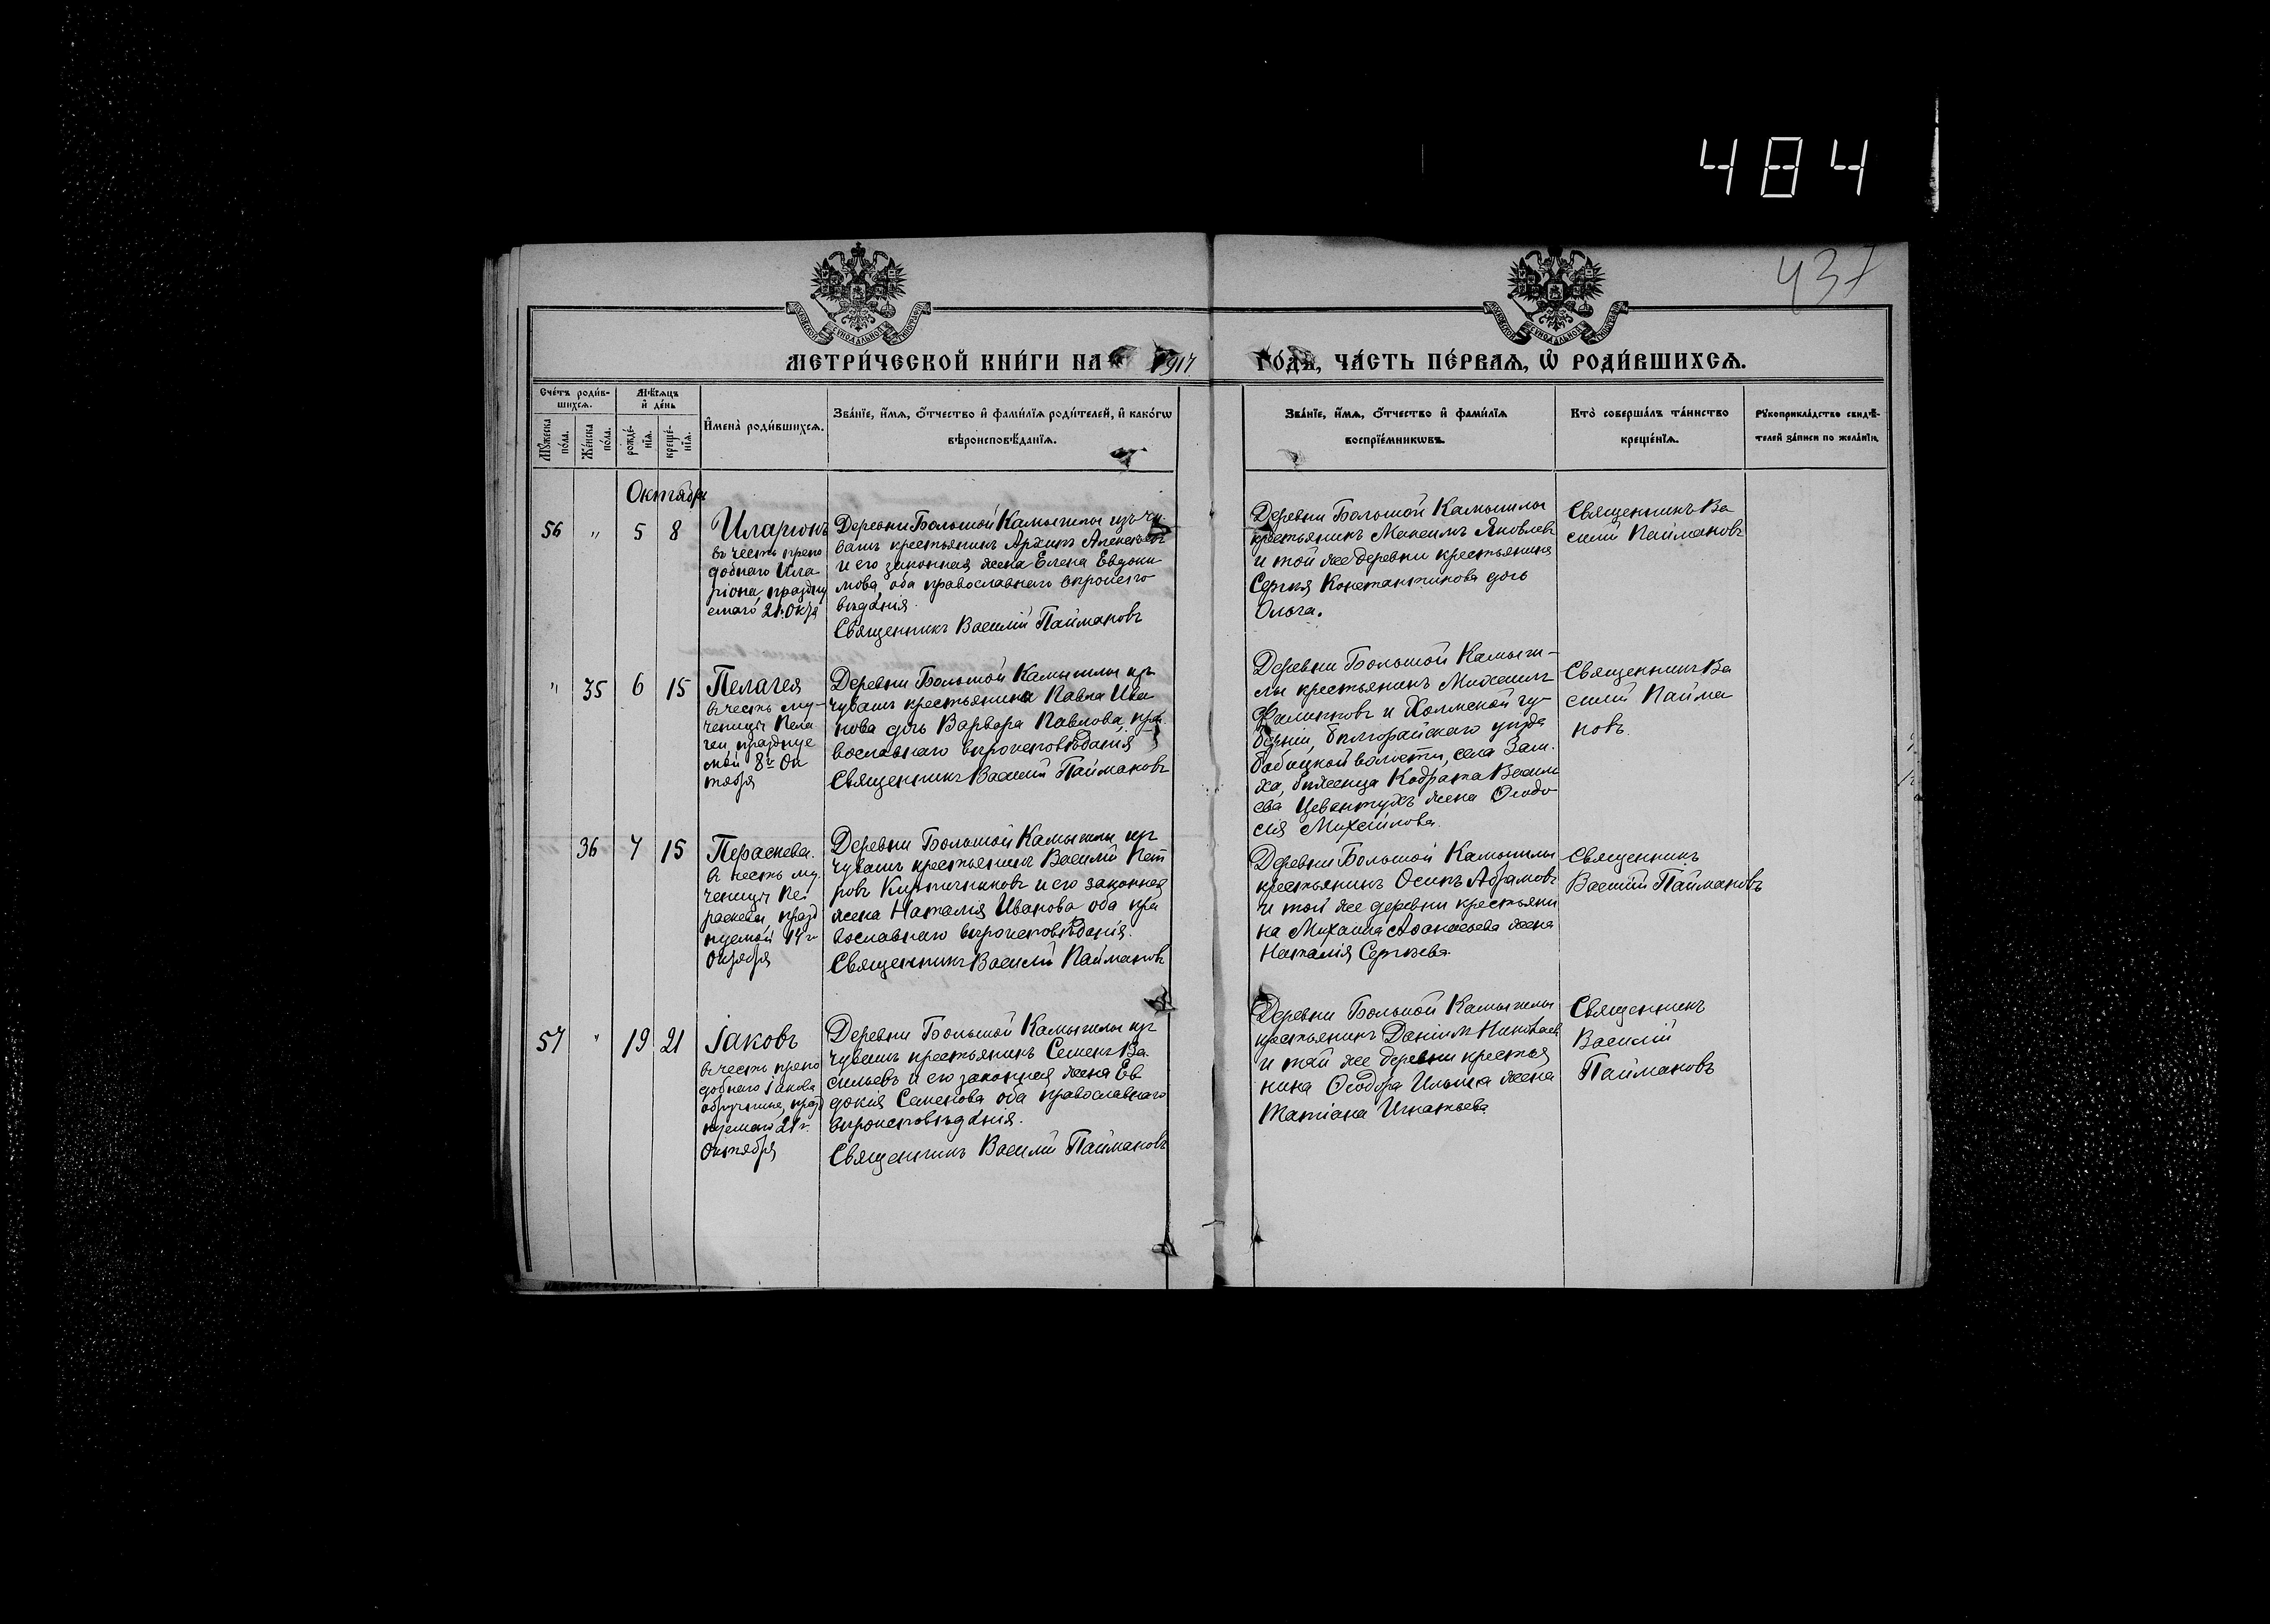 484
437
МЕТРИ́ЧЕСКОЙ КНИ́ГИ НА 1917 ГО́ДЪ, ЧА́СТЬ ПЕ́РВАѦ, Ѽ РОДИ́ВШИХСѦ.
Сче́тъ роди́в-
шихсѧ.
Мѣ́сѧцъ
и҆ де́нь
Мꙋ́жеска
по́ла.
Же́нска
по́ла.
рожде́-
нїѧ.
креще́-
нїѧ.
И҆мена̀ роди́вшихсѧ.
Зва́нїе, и҆́мѧ, ѻ҆́тчество и҆ фами́лїѧ роди́телей, и҆ како́гѡ
вѣроисповѣ́данїѧ.
Зва́нїе, и҆́мѧ, ѻ҆́тчество и҆ фами́лїѧ
воспрїе́мникѡвъ.
Кто̀ соверша́лъ та́инство
креще́нїѧ.
Рꙋкоприкла́дство свидѣ́-
телей за́писи по жела́нїю.
Октябрь
56 " 5 8
Иларионъ
въ честь препо
добнаго Ила
ріона, праздну
емаго 21. Окт
Деревни Большой Камышлы изъ чу
вашъ крестьянинъ Архипъ Алексѣевъ
и его законная жена Елена Евдоки
мова, оба православнаго вѣроиспо
вѣданія.
Священникъ Василій Паймановъ
Деревни Большой Камышлы
крестьянинъ Максимъ Яковлевъ
и той же деревни крестьянина
Сергѣя Константинова дочь
Ольга.
Священникъ Ва
силій Паймановъ
" 35 6 15
Пелагея
въ честь му-
ченицы Пела
геи, празднуе
мой 8го Ок
тября
Деревни Большой Камышлы изъ
чувашъ крестьянина Павла Ива
нова дочь Варвара Павлова, пра
вославнаго вѣроисповѣданія
Священникъ Василій Паймановъ
Деревни Большой Камыш-
лы крестьянинъ Михаилъ
Филипповъ и Холмской гу-
берніи, Билгорайскаго уѣзда
волости, села Зам.
ха, беженца Кодрата Василь
ева жена Ѳеодо
сія Михайлова.
Священникъ Ва
силій Пайма
новъ.
36 7 15
Параскева.
въ честь му
ченицы Па
раскевы, празд
нуемой 14го
Октября
Деревни Большой Камышлы изъ
чувашъ крестьянинъ Василій Пет
ровъ Кирпичниковъ и его законная
жена Наталія Иванова оба пра
вославнаго вѣроисповѣданія.
Священникъ Василій Паймановъ
Деревни Большой Камышлы
крестьянинъ Осипъ Абрамовъ
и той же деревни крестьяни
на Михаила Аѳанасьева жена
Наталія Сергѣева.
Священникъ
Василій Паймановъ
57 " 19 21
Іаковъ
въ честь препо
добнаго Іакова
празд
нуемаго 21го
Октября
Деревни Большой Камышлы изъ
чувашъ крестьянинъ Семенъ Ва
сильевъ и его законная жена Ев
докія Семенова оба православнаго
вѣроисповѣданія.
Священникъ Василій Паймановъ
Деревни Большой Камышлы
крестьянинъ Даніилъ Николаевъ
и той же деревни крестья
нина Ѳеодора Ильина жена
Татіана Игнатьева
Священникъ
Василій
Паймановъ